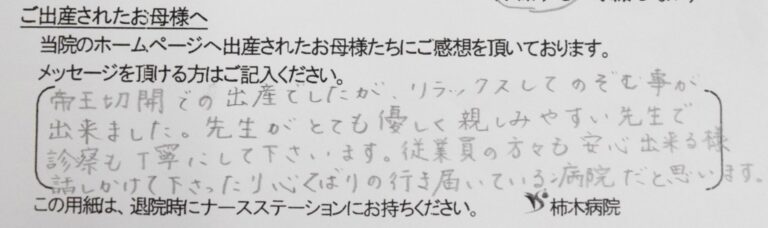 ご出産されたお母様へ
当院のホームページへ出産されたお母様たちにご感想を頂いております。
メッセージを頂ける方はご記入ください。
帝王切開での出産でしたが、リラックスしてのぞむ事が
出来ました。先生がとても優しく親しみやすい先生で
診察も丁寧にして下さいます。従業員の方々も安心出来る様
話しかけて下さったり心くばりの行き届いている病院だと思います。
この用紙は、退院時にナースステーションにお持ちください。 柿木病院